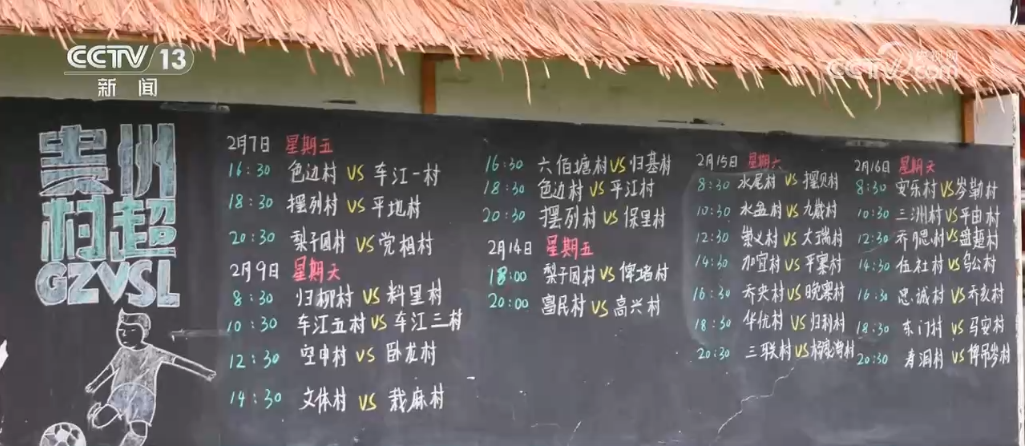 CCTV 13
新闻
CCTV.com
贵州
村超
GZVSL
2月7日 星期五
16:30 色边村 VS 车江一村
18:30 摆列村 VS 平地村
20:30 梨子园村 VS 党相村
2月9日 星期天
8:30 归柳村 VS 料里村
10:30 车江五村 VS 车江三村
12:30 空申村 VS 卧龙村
14:30 文体村 VS 栽麻村
16:30 六佰塘村 VS 归基村
18:30 色边村 VS 平江村
20:30 摆列村 VS 保里村
2月14日 星期五
18:00 梨子园村 VS
20:00 富民村 VS 高兴村
2月15日 星期六
8:30 水尾村 VS 摆贝村
10:30 水盆村 VS 九嶻村
12:30 崇义村 VS 大瑞村
14:30 加宜村 VS 平寨村
16:30 乔央村 VS 晚寨村
18:30 华优村 VS 归利村
20:30 三联村 VS
2月16日 星期天
8:30 安乐村 VS 岑勒村
10:30 三洲村 VS 平由村
12:30 VS
14:30 伍社村 VS 乌公村
16:30 忠诚村 VS
18:30 东门村 VS 马安村
20:30 寿洞村 VS